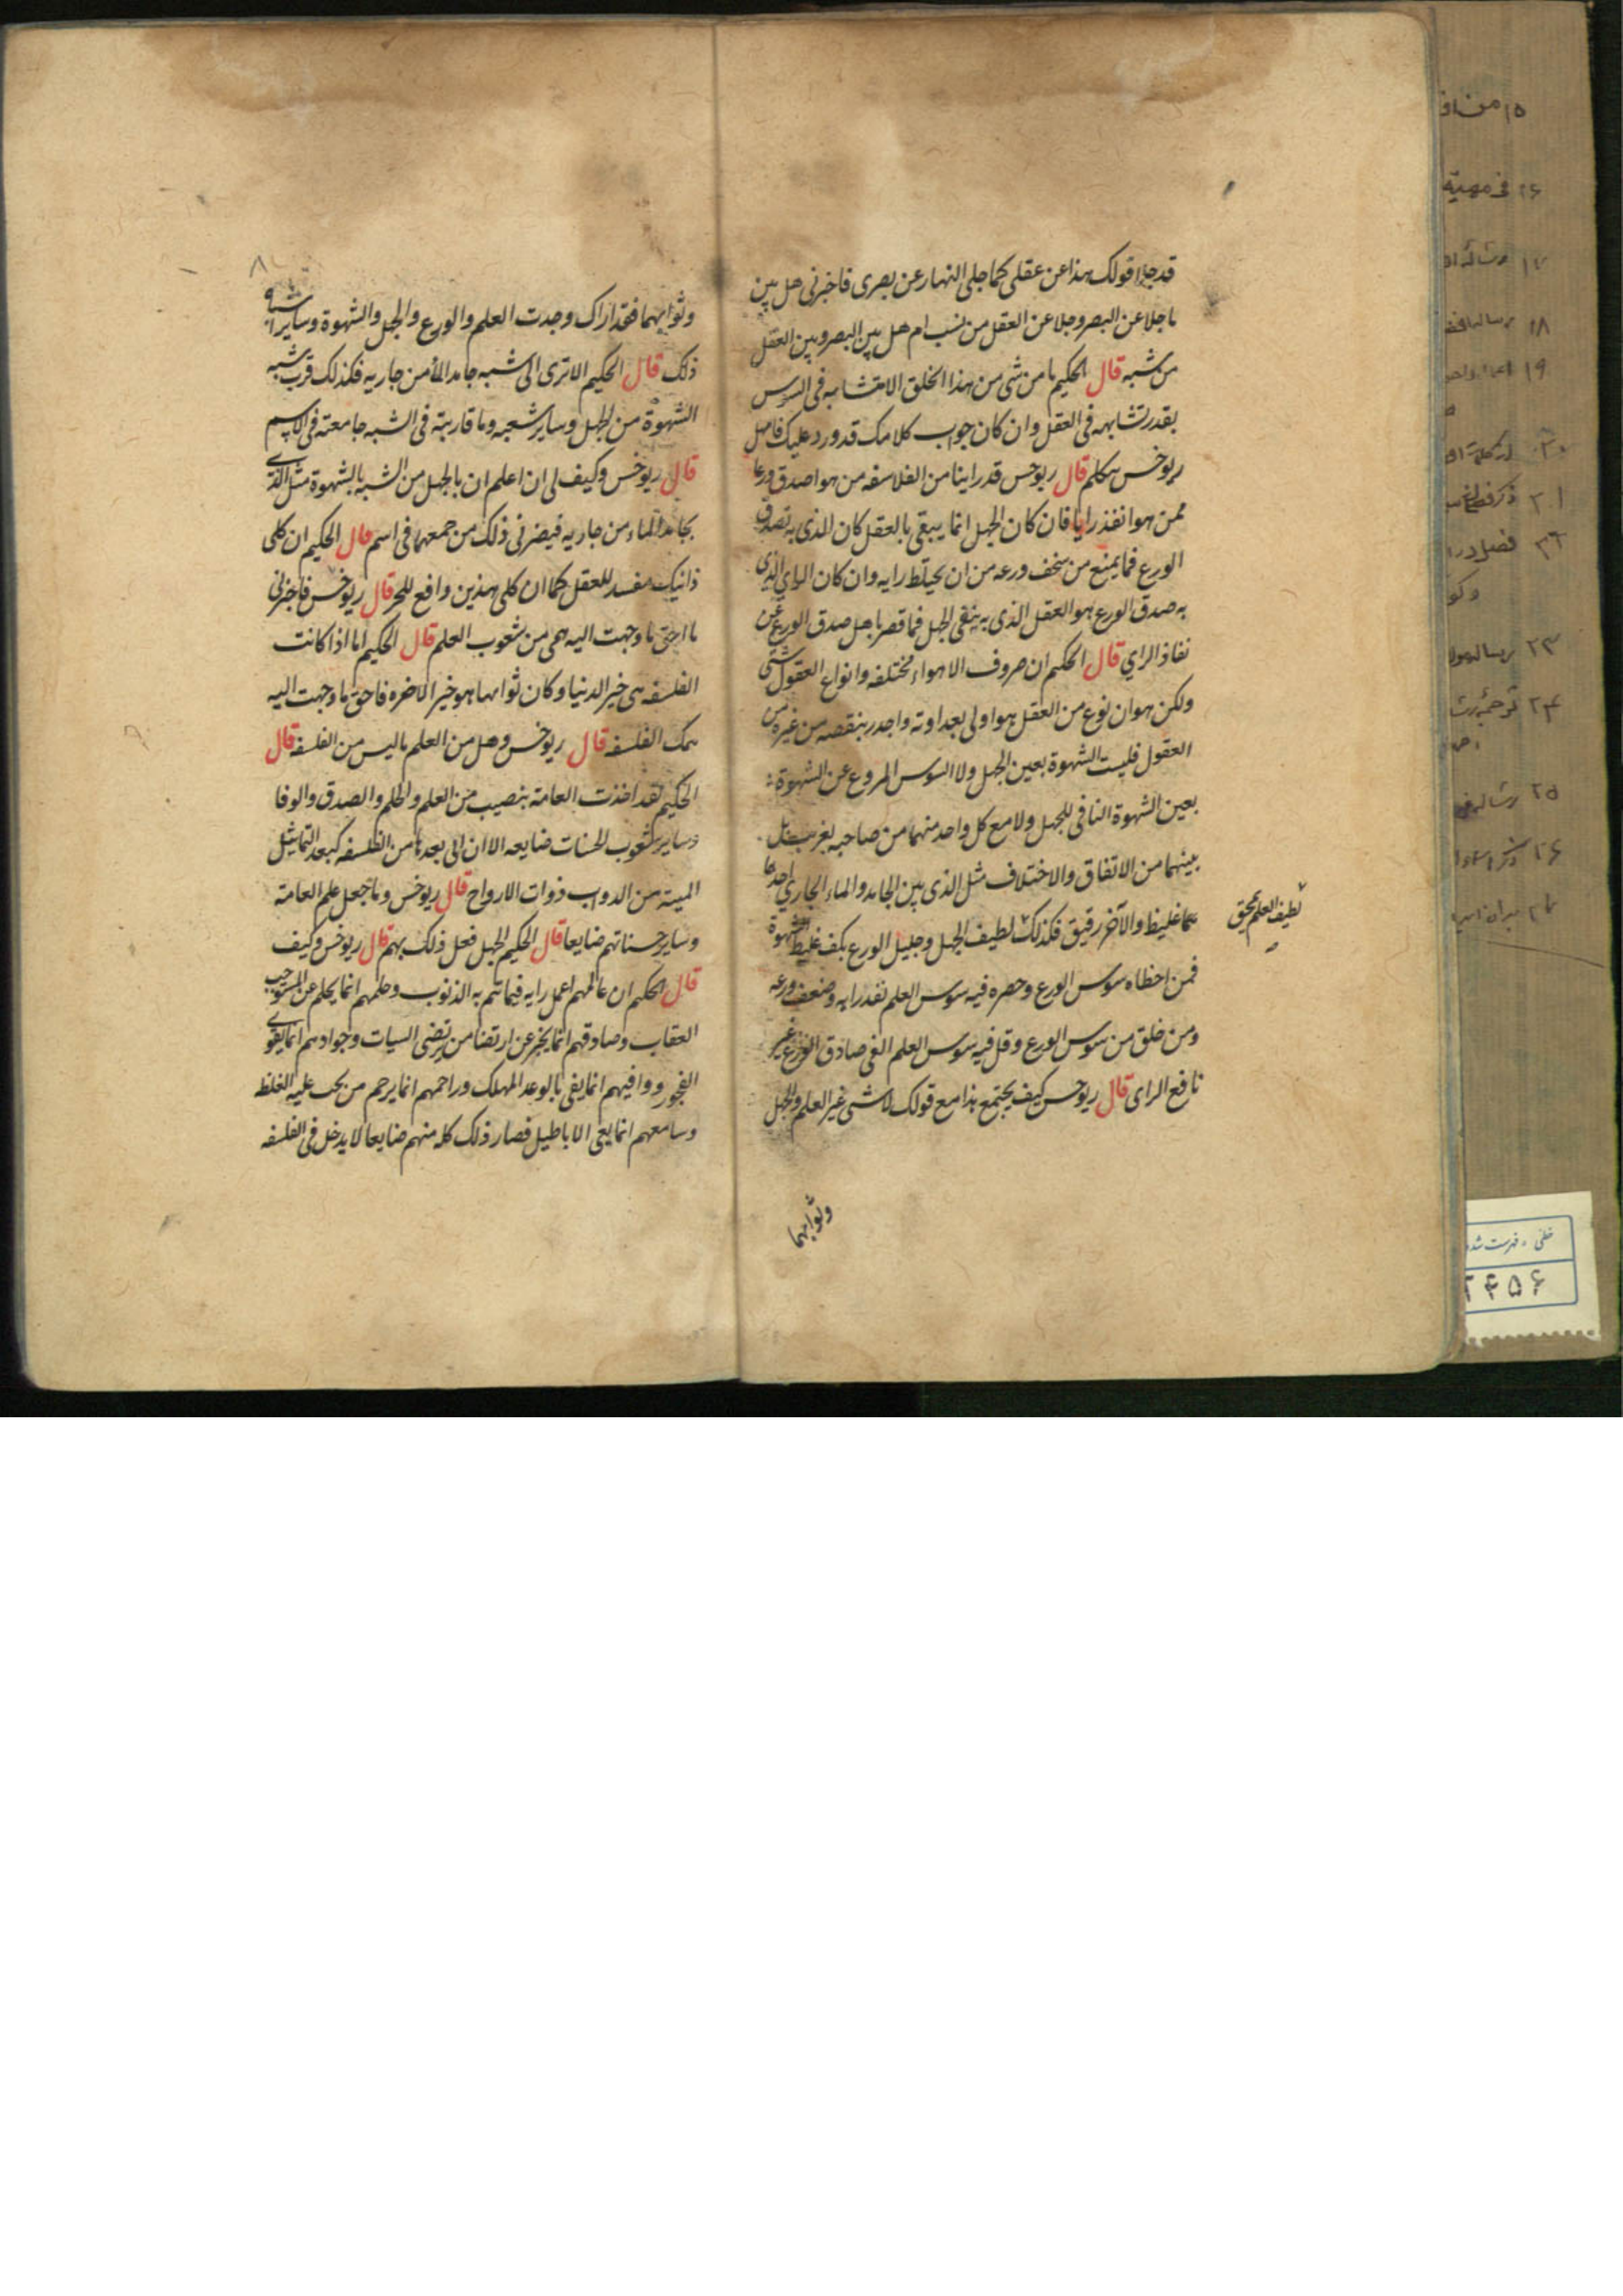 قد جلا قولك هذا عن عقلي كما جلى النهار عن بصرى فاخبرنى هل بين
ما جلا عن البصر وجلا عن العقل من نسب ام هل بين البصر وبين العقل
من شبه قال الحكيم ما من شى من هذا الخلق الا متشابه فى السوس
بقدر تشابهه فى العقل وان كان جواب كلامك قد ورد عليك فامهل
ريوخس يتكلم قال ريوخس قد راينا من الفلاسفه من هو اصدق ورعا
ممن هو انفذ رايا فان كان الجهل انما يبقى بالعقل كان الذى به تصدق
الورع فما يمنع من سخف ورعه من ان يختلط رايه وان كان الراي الذي
به صدق الورع هو العقل الذى به ينقى الجهل فما قصر باهل صدق الورع عن
نفاذ الراي قال الحكيم ان صروف الاهواء مختلفه وانواع العقول شتى
ولكن هو ان نوع من العقل هو اولى بعداوته واجدر بنقصه من غيره من
العقول فليست الشهوة بعين الجهل ولا السوس المروع عن الشهوة
بعين الشهوة النافى للجهل ولا مع كل واحد منهما من صاحبه بغريب بل
بينهما من الاتفاق والاختلاف مثل الذى بين الجامد والماء الجاري احدهما
غليظ والآخر رقيق فكذلك لطيف الجهل وجليل الورع يكف غليظ الشهوة
لطيف العلم يمحق
فمن اخطاه سوس الورع وحصره فيه سوس العلم نفذ رايه وضعف ورعه
ومن خلق من سوس الورع وقل فيه سوس العلم الفى صادق الورع غير
نافع الراى قال ريوخس كيف يجتمع هذا مع قولك لا شى غير العلم والجهل
وثوابهما
٨
وثوابهما فقد اراك وجدت العلم والورع والجهل والشهوة وساير اشباه
ذلك قال الحكيم الا ترى الى شبه جامد المأ من جاريه فكذلك قرب شبه
الشهوة من الجهل وساير شعبه وما قاربته فى الشبه جامعته فى الاسم
قال ريوخس وكيف لى ان اعلم ان بالجهل من الشبه بالشهوة مثل الذي
بجامد الماء من جاريه فيضرنى ذلك من جمعهما فى اسم قال الحكيم ان كلى
ذانيك مفسد للعقل كما ان كلى هذين دافع للحر قال ريوخس فاخبرنى
ما احق ما وجهت اليه همى من شعوب العلم قال الحكيم اما اذا كانت
الفلسفه هى خير الدنيا وكان ثوابها هو خير الاخره فاحق ما وجهت اليه
همك الفلسفه قال ريوخس وهل من العلم ما ليس من الفلسفه قال
الحكيم لقد اخذت العامه بنصيب من العلم والحلم والصدق والوفا
وساير شعوب الحسنات ضايعه الا ان الى بعدها من الفلسفه كبعد التماثيل
الميته من الدواب ذوات الارواح قال ريوخس وما جعل علم العامه
وساير حسناتهم ضايعا قال الحكيم الجهل فعل ذلك بهم قال ريوخس وكيف
قال الحكيم ان عالمهم اعمل رايه فيما تم به الذنوب وحلمهم انما يحلم عن المستوجب
العقاب وصادقهم انما يخبر عن ارتضا من يرتضى السيات وجوادهم انما يقوي
الفجور ووافيهم انما يفى بالوعد المهلك وراحمهم انما يرحم من يجب عليه الغلظ
وسامعهم انما يعى الاباطيل فصار ذلك كله منهم ضايعا لا يدخل فى الفلسفه
١٨
١٩
٢١
٢٣
٢٥
خطى - فهرست شده
٣۴۵۶